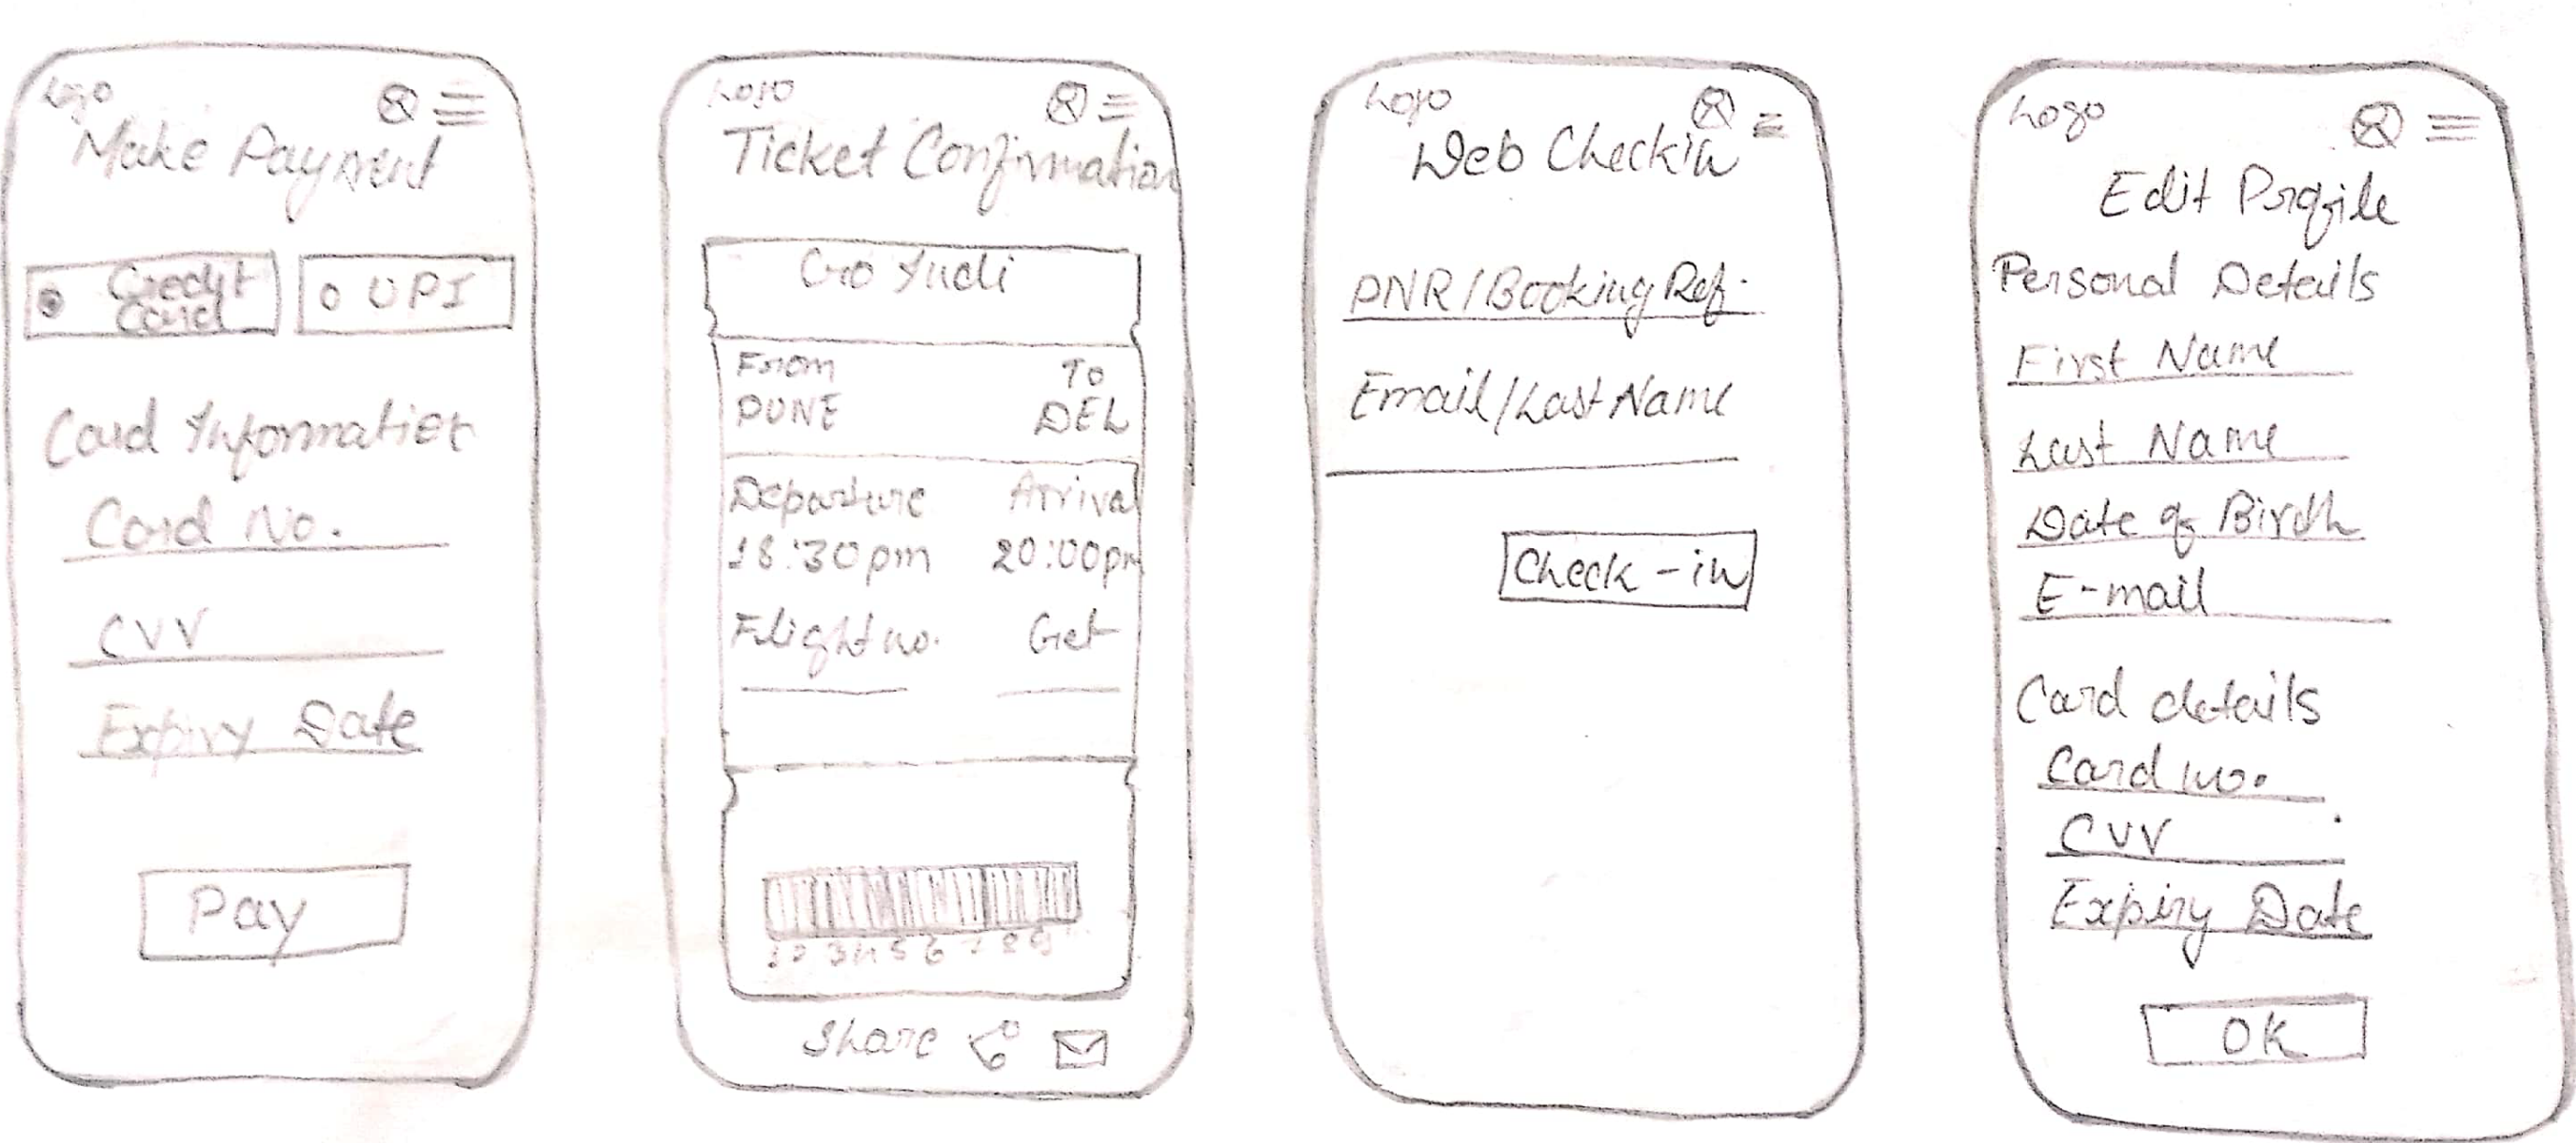 Logo
Make Payment
Credit
Card
UPI
Card Information
Card No.
CVV
Expiry Date
Pay
Logo
Ticket Confirmation
From To
PUNE DEL
Departure Arrival
18:30pm 20:00pm
Flight no. Get
Share
Logo
Web Checkin
PNR/Booking Ref.
Email/Last Name
Check-in
Logo
Edit Profile
Personal Details
First Name
Last Name
Date of Birth
E-mail
Card details
Card no.
CVV
Expiry Date
OK